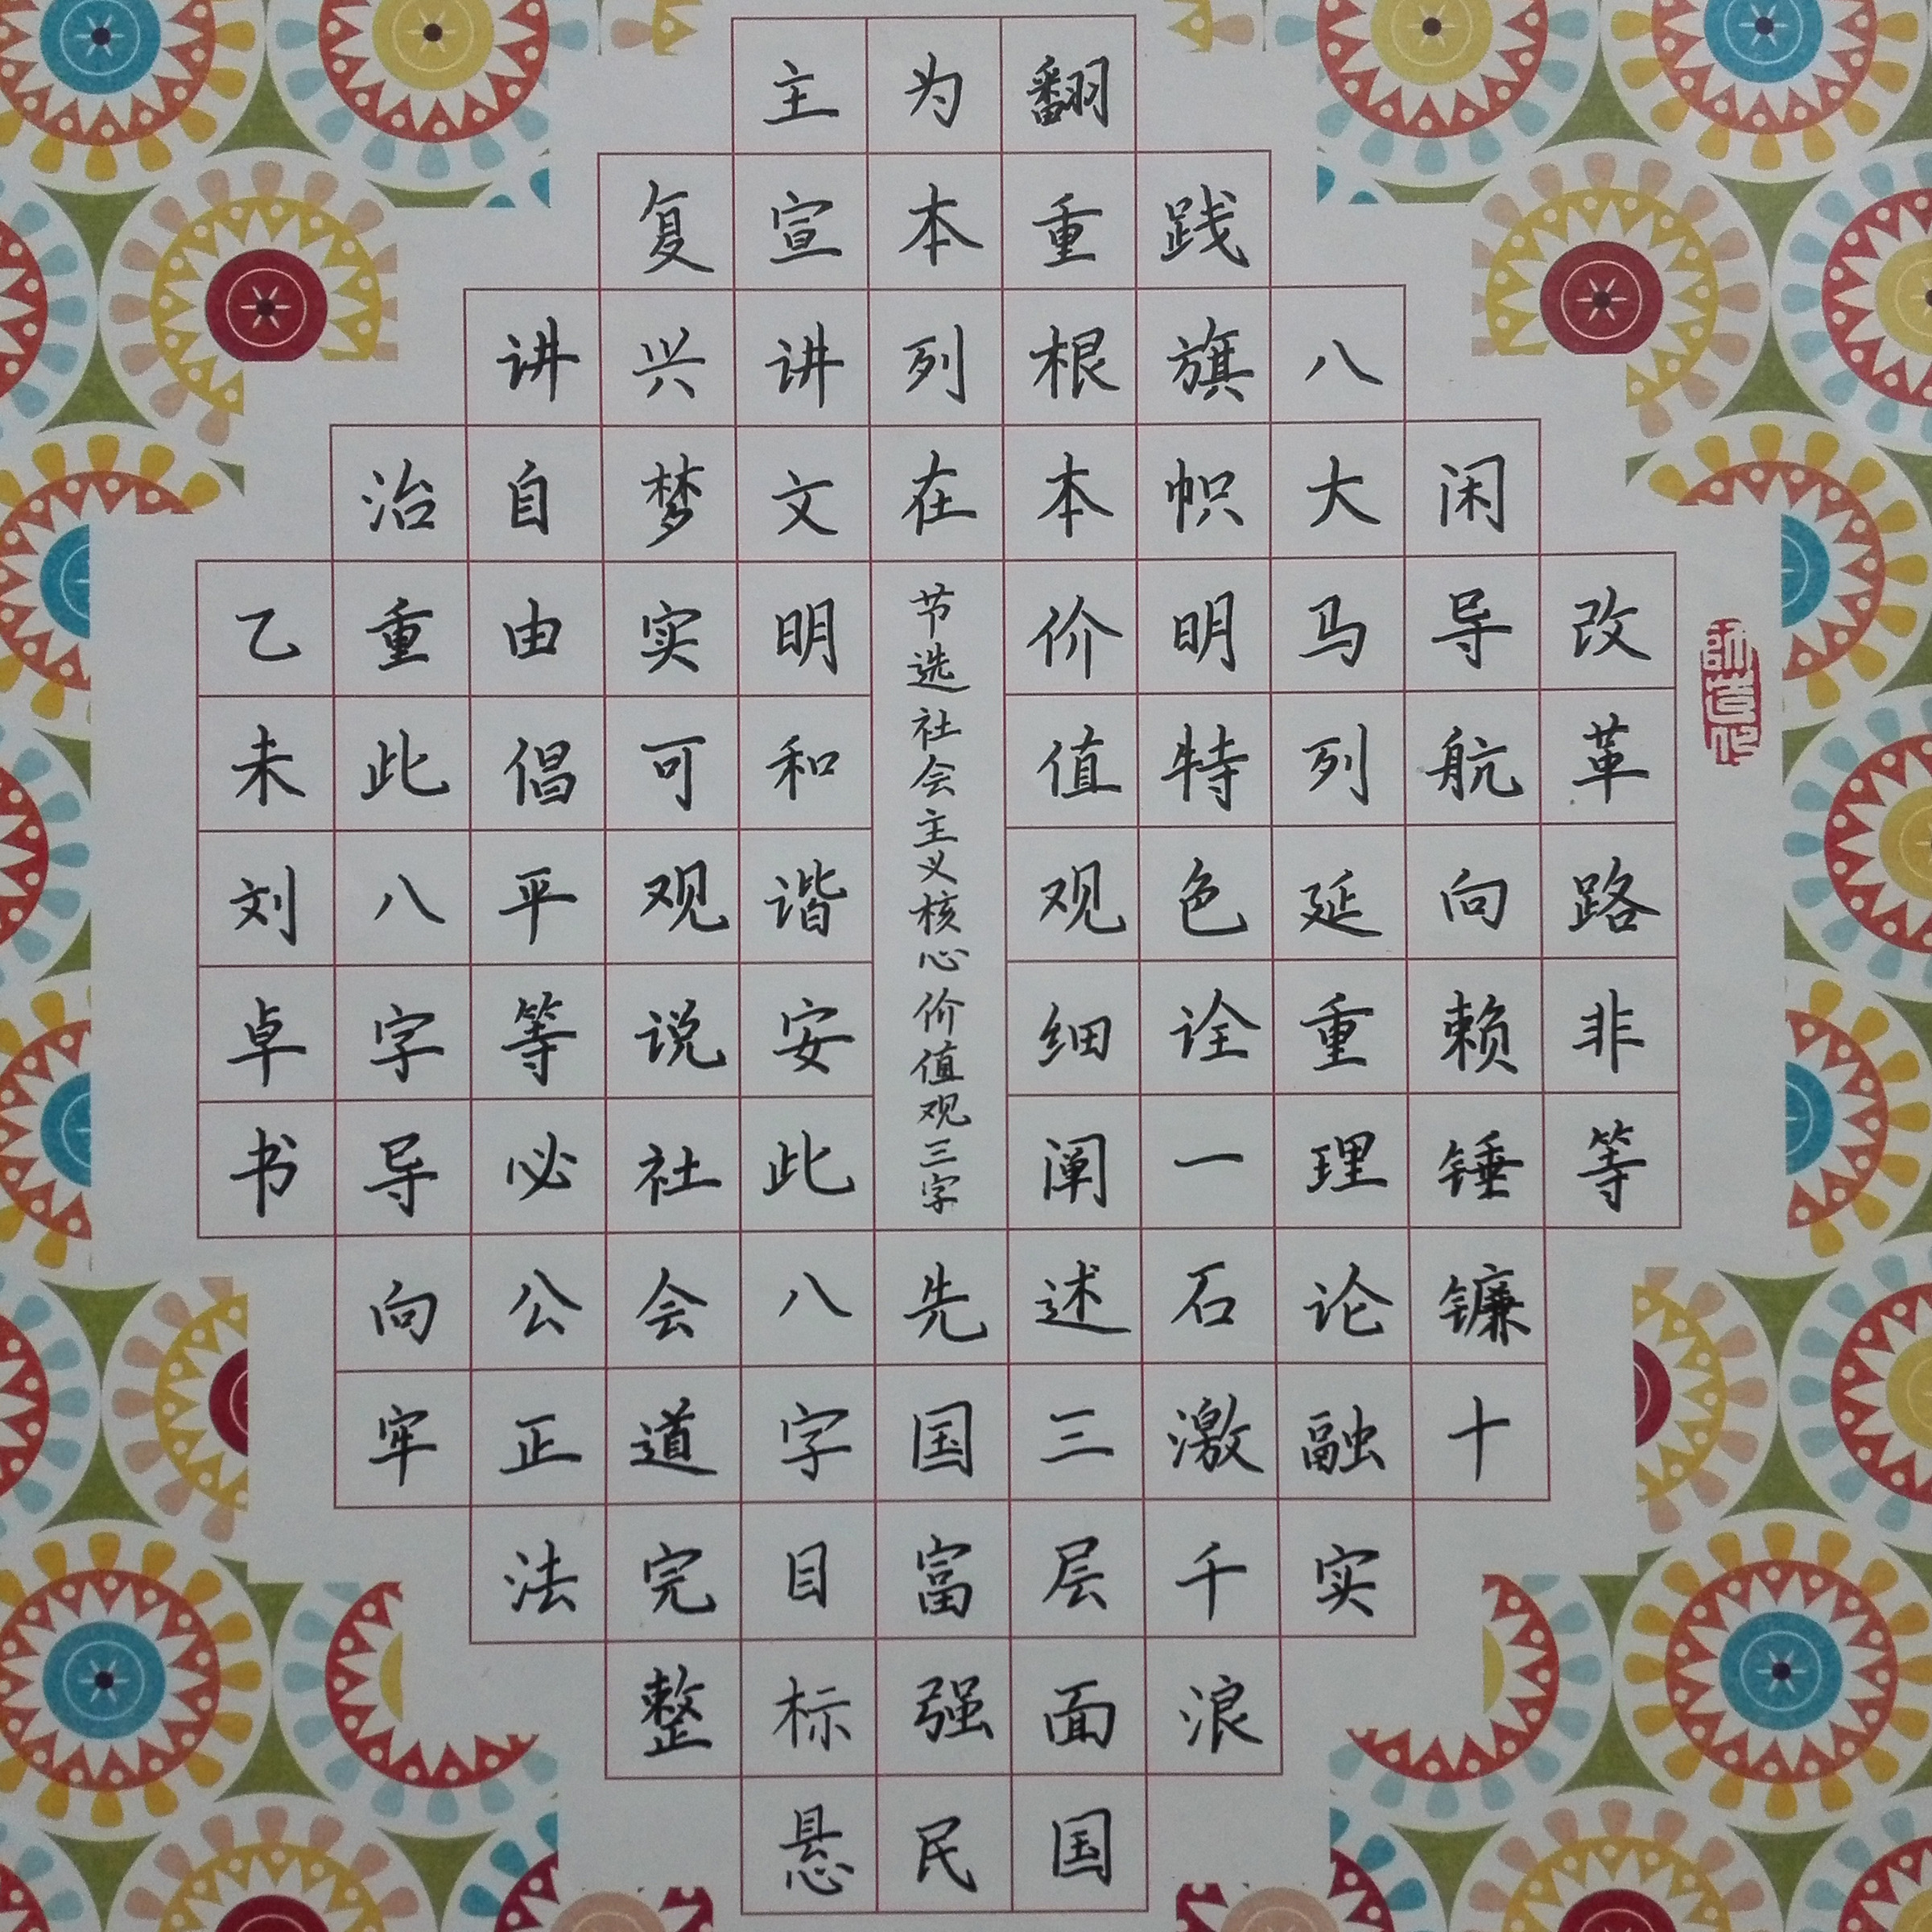 改革路非等
闲导航向赖锤镰十
八大马列延重理论融实
践旗帜明特色诠一石激千浪
翻重根本价值观细阐述三层面国
为本列在
节选社会主义核心价值观三字
先国富强民
主宣讲文明和谐安此八字目标悬
复兴梦实可观说社会道完整
讲自由倡平等必公正法
治重此八字导向牢
乙未刘卓书